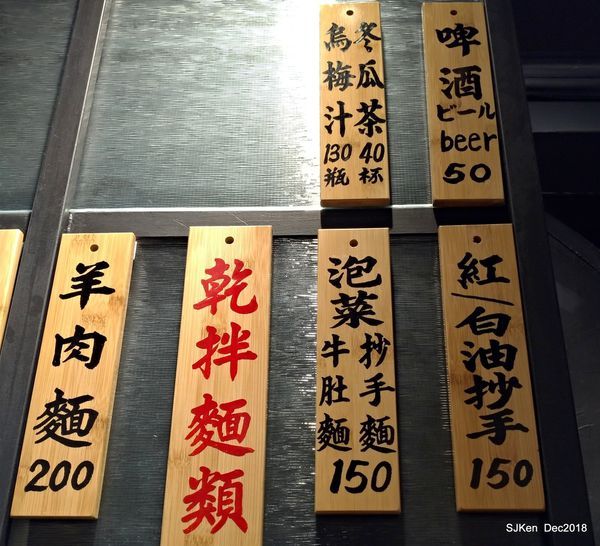 啤酒
ビール
beer
50
冬瓜茶
40
杯
烏梅汁
130
瓶
紅/白油抄手
150
泡菜
抄手麵
牛肚麵
150
乾拌麵類
羊肉麵
200
SJKen Dec2018